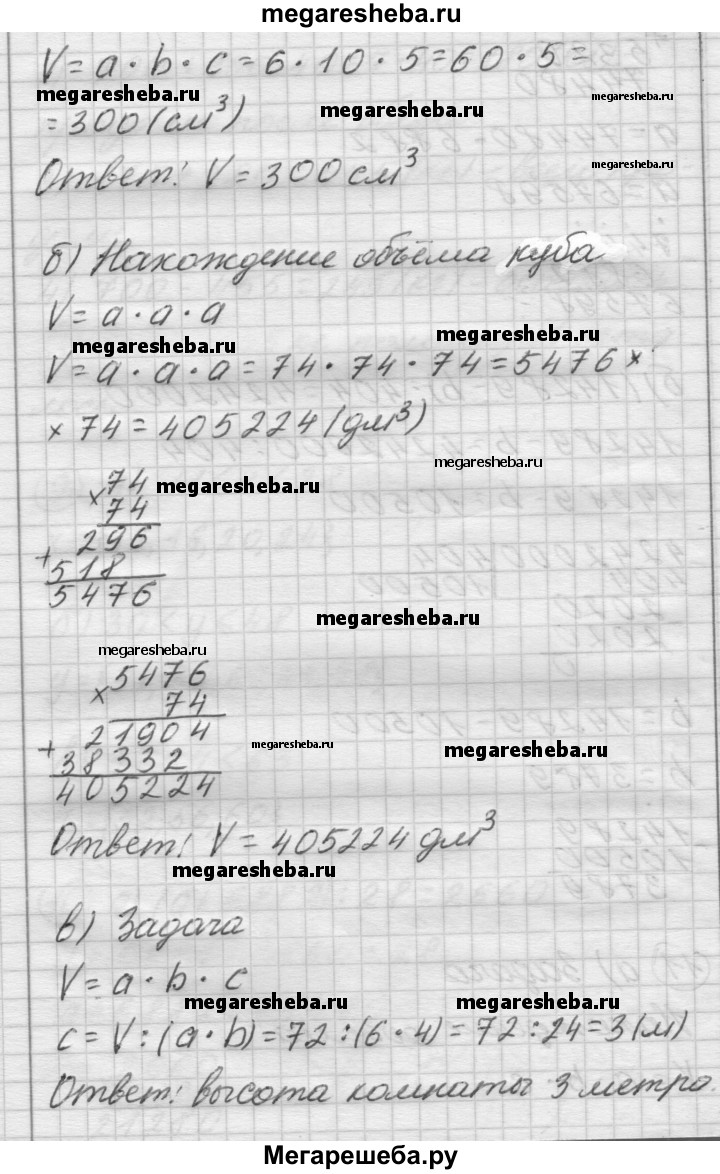 megaresheba.ru
V = a · b · c = 6 · 10 · 5 = 60 · 5 =
megaresheba.ru
megaresheba.ru
megaresheba.ru
= 300 (см³)
megaresheba.ru
Ответ: V = 300 см³
б) Нахождение объёма куба
V = a · a · a
megaresheba.ru
megaresheba.ru
V = a · a · a = 74 · 74 · 74 = 5476 ×
× 74 = 405224 (дм³)
megaresheba.ru
× 74
megaresheba.ru
74
296
+
518
5476
megaresheba.ru
megaresheba.ru
× 5476
74
21904
megaresheba.ru
megaresheba.ru
+
38332
405224
Ответ: V = 405224 дм³
megaresheba.ru
в) Задача
V = a · b · c
megaresheba.ru
megaresheba.ru
c = V : (a · b) = 72 : (6 · 4) = 72 : 24 = 3 (м)
Ответ: высота комнаты 3 метра.
Мегарешеба.ру